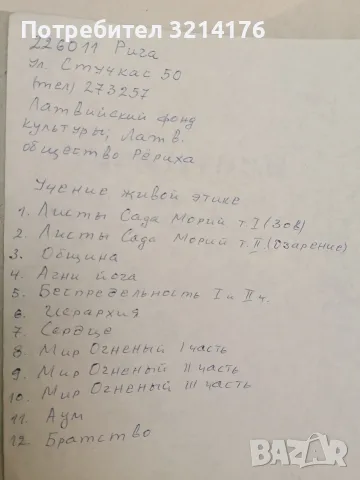 226011 Рига
ул. Стучкас 50
(тел) 273257
Латвийский фонд
культуры, Латв.
общество Рёриха
Учение живой этике
1. Листы Сада Морий т. I (Зов)
2. Листы Сада Морий т. II (Озарение)
3. Община
4. Агни йога
5. Беспредельность I и II ч.
6. Иерархия
7. Сердце
8. Мир Огненый I часть
9. Мир Огненый II часть
10. Мир Огненый III часть
11. Аум
12. Братство
Обява 3214176
bazar.bg
BAZAR